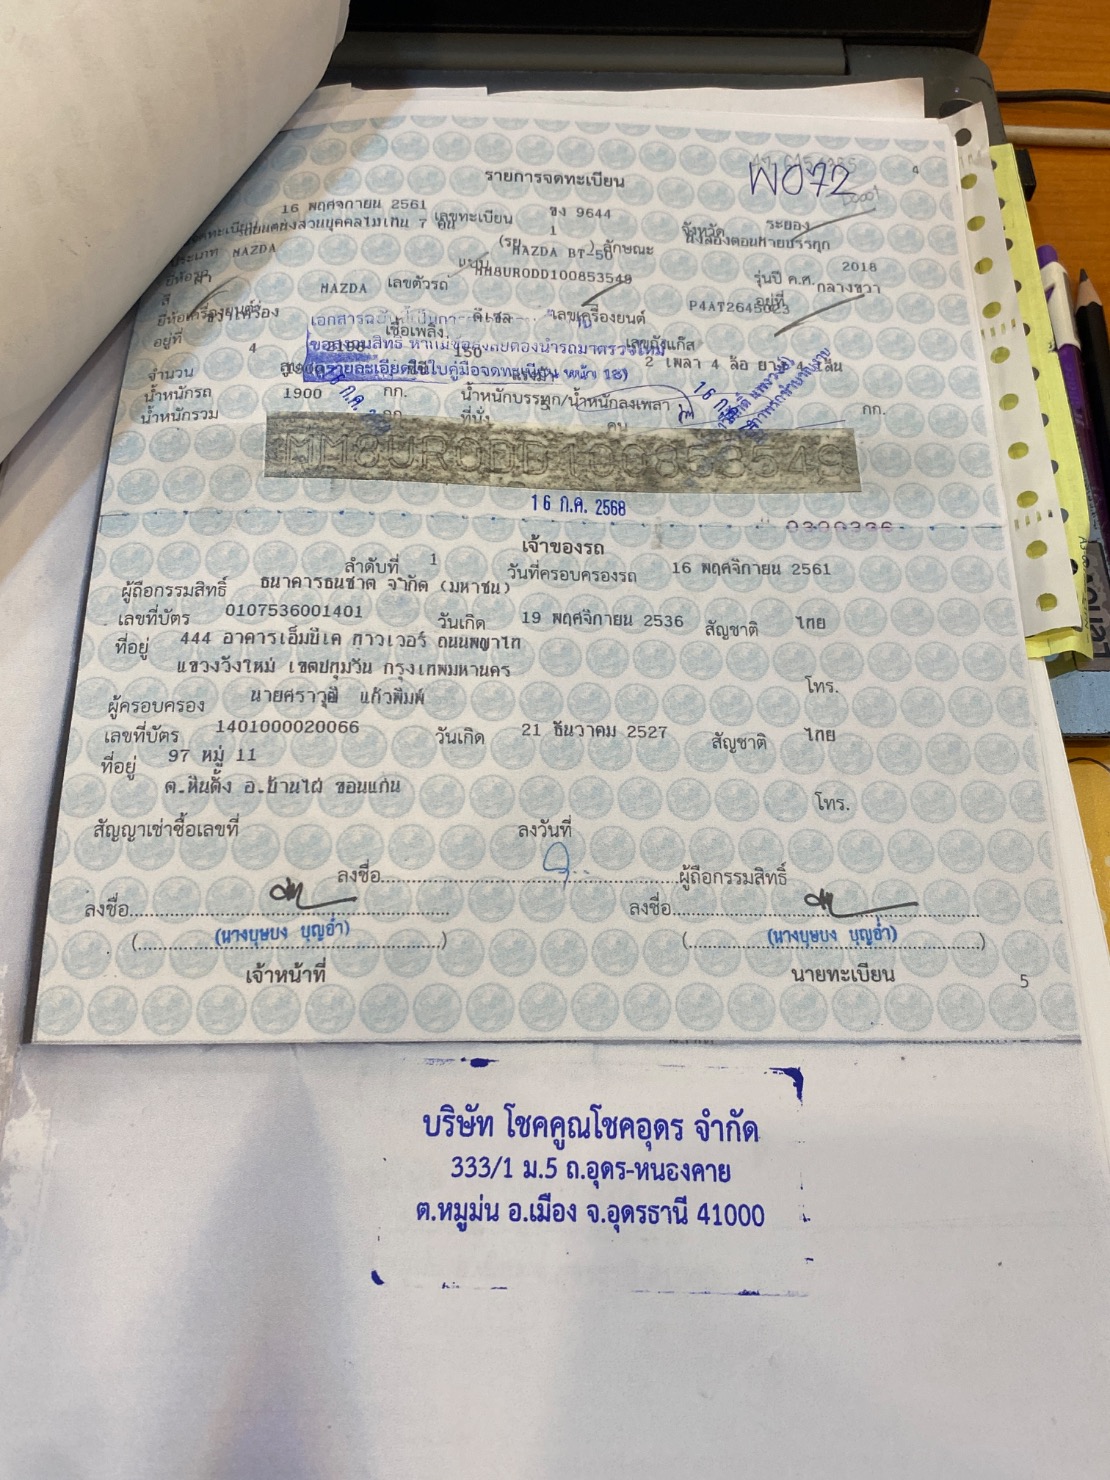 W072
รายการจดทะเบียน
16 พฤศจิกายน 2561 เลขทะเบียน ขง 9644 จังหวัด ระยอง
รถยนต์นั่งส่วนบุคคลไม่เกิน 7 คน 1
ประเภท MAZDA MAZDA BT-50 ลักษณะ
2018
เลขตัวรถ MM8UR0DD100853549 รุ่นปี ค.ศ.
สี MAZDA อยู่ที่ กลางขวา
ยี่ห้อเครื่องยนต์ ดีเซล เลขเครื่องยนต์ P4AT2645023
อยู่ที่ เชื้อเพลิง เลขถังแก๊ส
4 150 2 เพลา 4 ล้อ ยาง 4 เส้น
จำนวน สูบ
น้ำหนักรถ 1900 กก. น้ำหนักบรรทุก/น้ำหนักลงเพลา กก.
น้ำหนักรวม กก. ที่นั่ง คน
MM8UR0DD100853549
16 ก.ค. 2568
0300336
เจ้าของรถ
ลำดับที่ 1 วันที่ครอบครองรถ 16 พฤศจิกายน 2561
ผู้ถือกรรมสิทธิ์ ธนาคารธนชาต จำกัด (มหาชน)
เลขที่บัตร 0107536001401 วันเกิด 19 พฤศจิกายน 2536 สัญชาติ ไทย
ที่อยู่ 444 อาคารเอ็มบีเค ทาวเวอร์ ถนนพญาไท
แขวงวังใหม่ เขตปทุมวัน กรุงเทพมหานคร
โทร.
ผู้ครอบครอง นายศราวุฒิ แก้วพิมพ์
เลขที่บัตร 1401000020066 วันเกิด 21 ธันวาคม 2527 สัญชาติ ไทย
ที่อยู่ 97 หมู่ 11
ต.หินตั้ง อ.บ้านไผ่ ขอนแก่น
โทร.
สัญญาเช่าซื้อเลขที่ ลงวันที่
ลงชื่อ ผู้ถือกรรมสิทธิ์
ลงชื่อ ลงชื่อ
(นางบุษบง บุญอ่ำ) (นางบุษบง บุญอ่ำ)
เจ้าหน้าที่ นายทะเบียน
5
บริษัท โชคคูณโชคอุดร จำกัด
333/1 ม.5 ถ.อุดร-หนองคาย
ต.หมูม่น อ.เมือง จ.อุดรธานี 41000